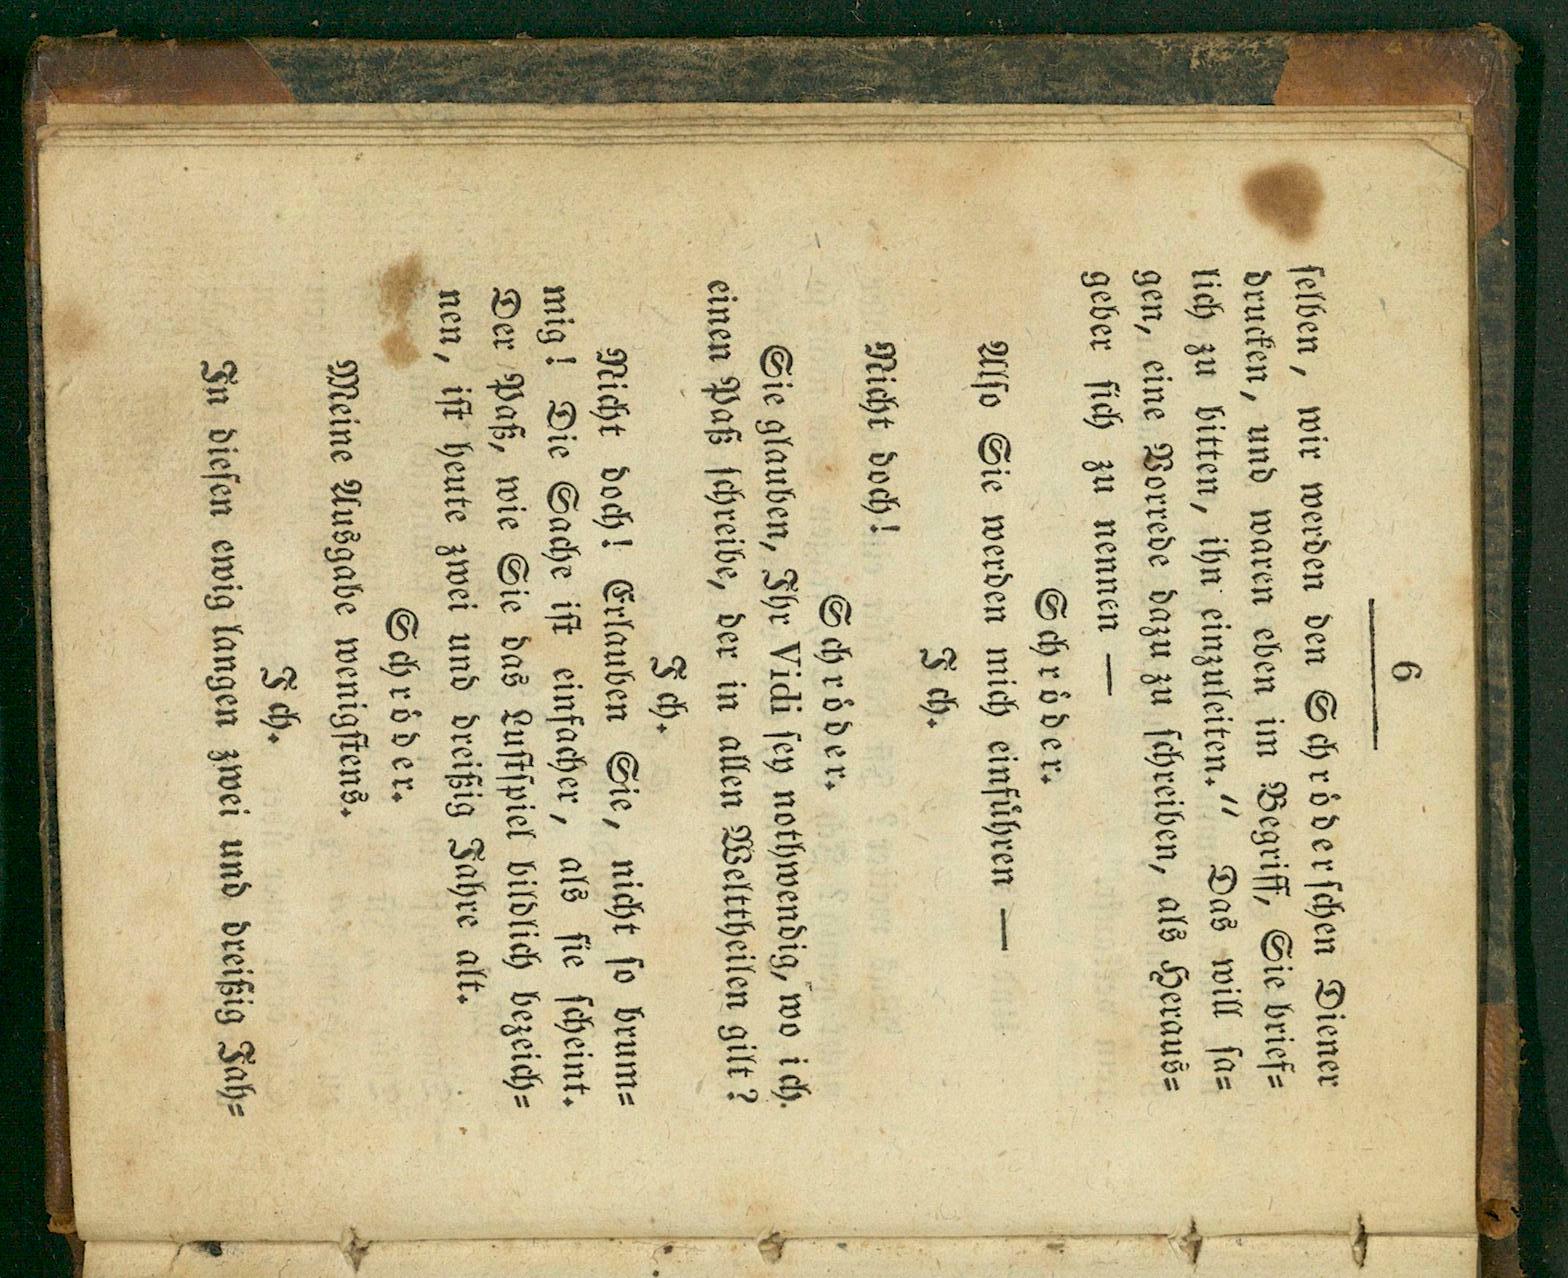 6
ſelben, wir werden den Schröderſchen Diener
drucken, und waren eben im Begriff, Sie brief=
lich zu bitten, ihn einzuleiten.“ Das will ſa=
gen, eine Vorrede dazu zu ſchreiben, als Heraus=
geber ſich zu nennen —
Schröder.
Alſo Sie werden mich einführen —
Ich.
Nicht doch!
Schröder.
Sie glauben, Ihr Vidi ſey nothwendig, wo ich
einen Paß ſchreibe, der in allen Welttheilen gilt?
Ich.
Nicht doch! Erlauben Sie, nicht ſo brum=
mig! Die Sache iſt einfacher, als ſie ſcheint.
Der Paß, wie Sie das Luſtſpiel bildlich bezeich=
nen, iſt heute zwei und dreißig Jahre alt.
Schröder.
Meine Ausgabe wenigſtens.
Ich.
In dieſen ewig langen zwei und dreißig Jah=